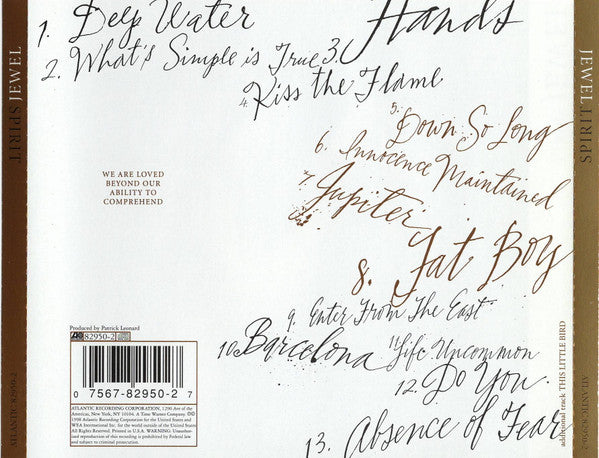 1. Deep Water
2. What's Simple is True
3. Hands
4. Kiss the Flame
5. Down So Long
6. Innocence Maintained
7. Jupiter
8. Fat Boy
9. Enter From The East
10. Barcelona
11. Life Uncommon
12. Do You
13. Absence of Fear
WE ARE LOVED
BEYOND OUR
ABILITY TO
COMPREHEND
Produced by Patrick Leonard
82950-2
0 7567-82950-2 7
ATLANTIC RECORDING CORPORATION, 1290 Ave of the
Americas, New York, NY 10104. A Time Warner Company.
1998 Atlantic Recording Corporation for the United States and
WEA International Inc. for the world outside of the United States.
All Rights Reserved. Printed in U.S.A. WARNING: Unauthor-
ized reproduction of this recording is prohibited by Federal law
and subject to criminal prosecution.
SPIRIT JEWEL
ATLANTIC 82950-2
JEWEL SPIRIT
additional track THIS LITTLE BIRD
ATLANTIC 82950-2